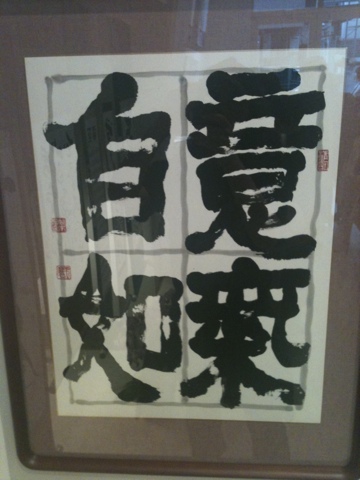 意氣
自如